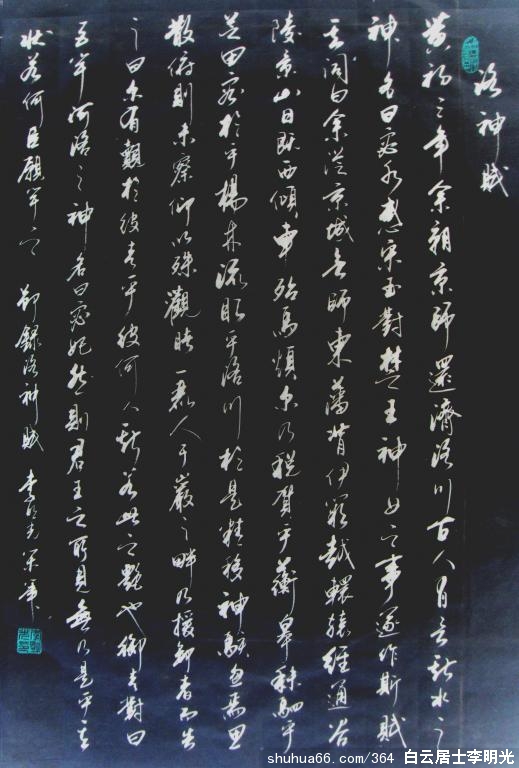 洛神賦
黃初三年余朝京師還濟洛川古人有言斯水之
神名曰宓妃感宋玉對楚王神女之事遂作斯賦
其詞曰余從京城言歸東藩背伊闕越轘轅經通谷
陵景山日既西傾車殆馬煩尔乃稅駕乎蘅皋秣駟乎
芝田容於乎楊林流眄乎洛川於是精移神駭忽焉思
散俯則未察仰以殊觀睹一麗人于巖之畔乃援御者而告
之曰尔有覿於彼者乎彼何人斯若此之艷也御者對曰
臣聞河洛之神名曰宓妃然則君王之所見無乃是乎其
狀若何臣願聞之 節錄洛神賦 李明光
shuhua66.com/364 白云居士李明光